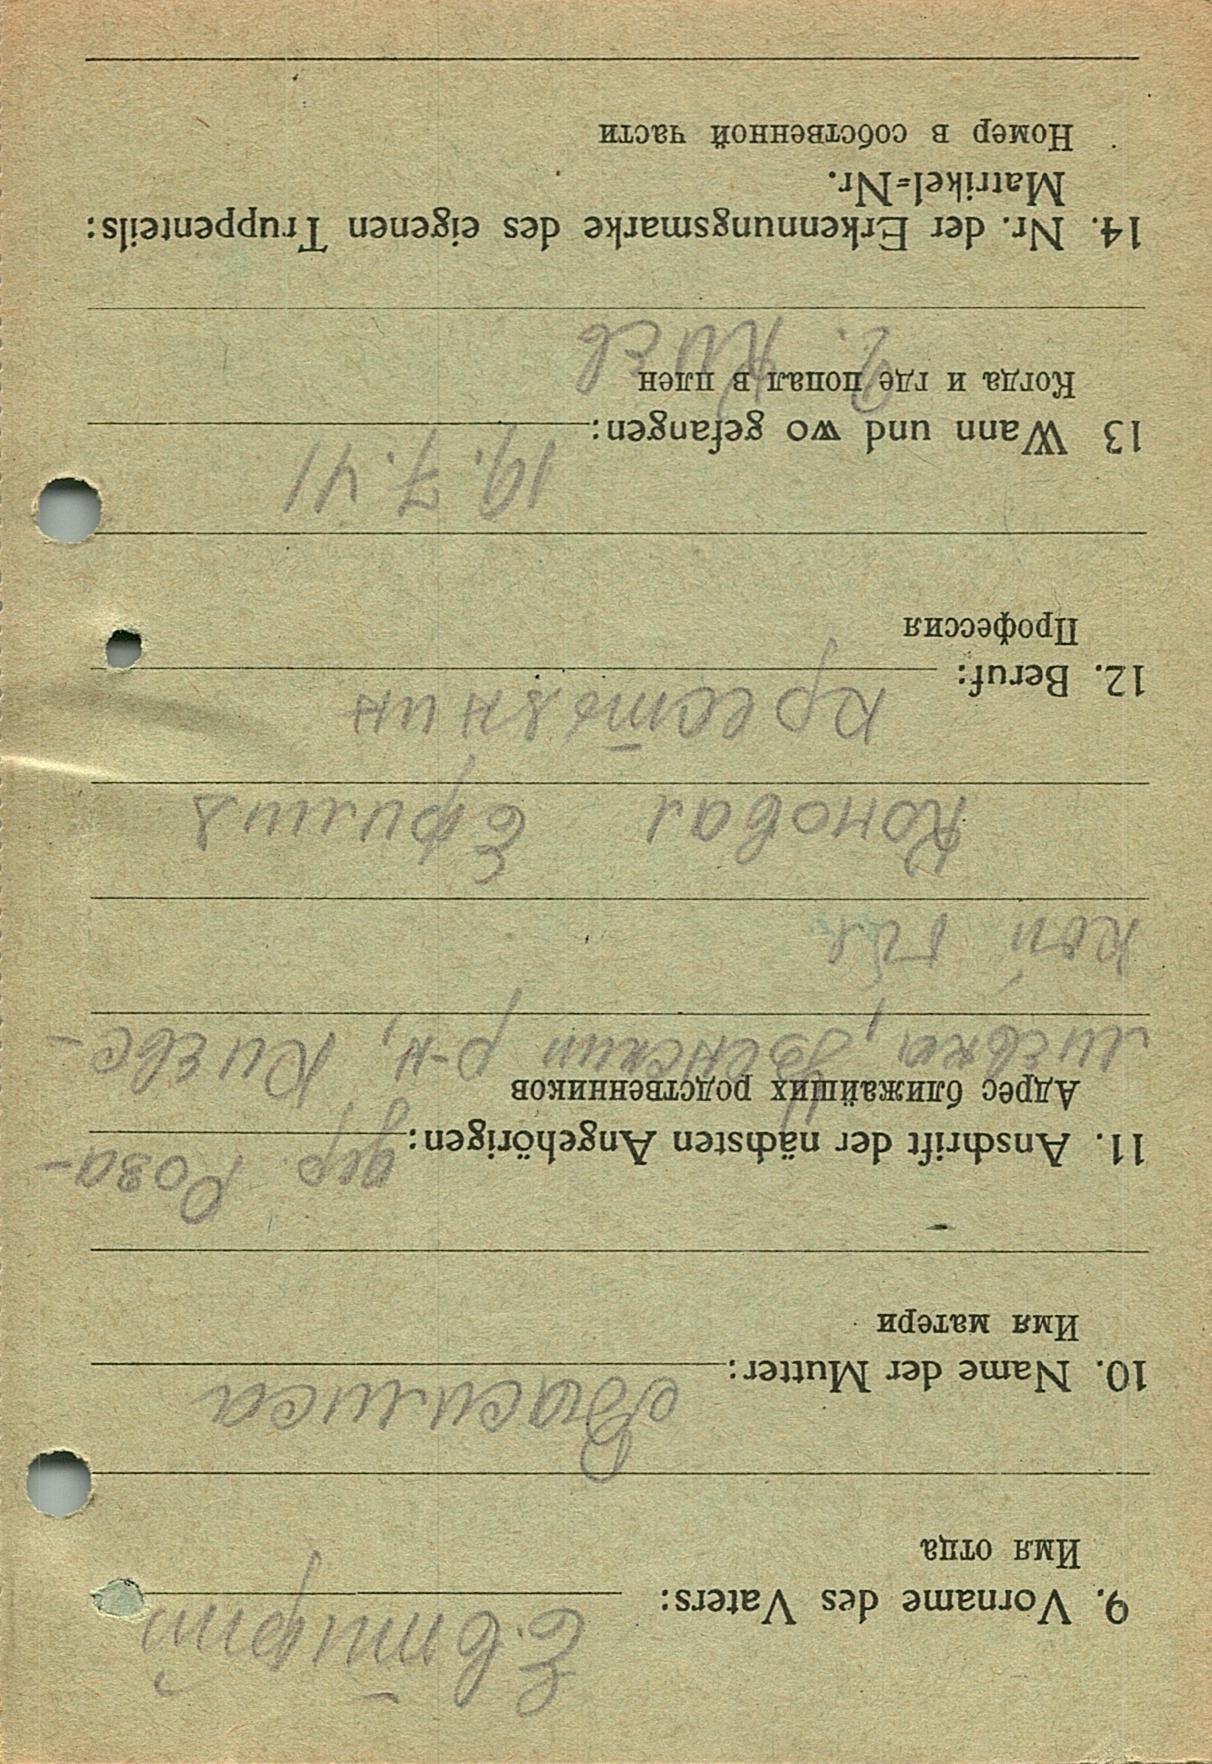 9. Vorname des Vaters: Евтифий
Имя отца
10. Name der Mutter: Василиса
Имя матери
11. Anschrift der nächsten Angehörigen: дер. Роза-
Адрес ближайших родственников
лиевка, Узинский р-н, Киевс-
кой
Коновал Ефимия
12. Beruf: крестьянин
Профессия
13 Wann und wo gefangen: 19.7.41
Когда и где попал в плен
г. Киев
14. Nr. der Erkennungsmarke des eigenen Truppenteils:
Matrikel=Nr.
Номер в собственной части